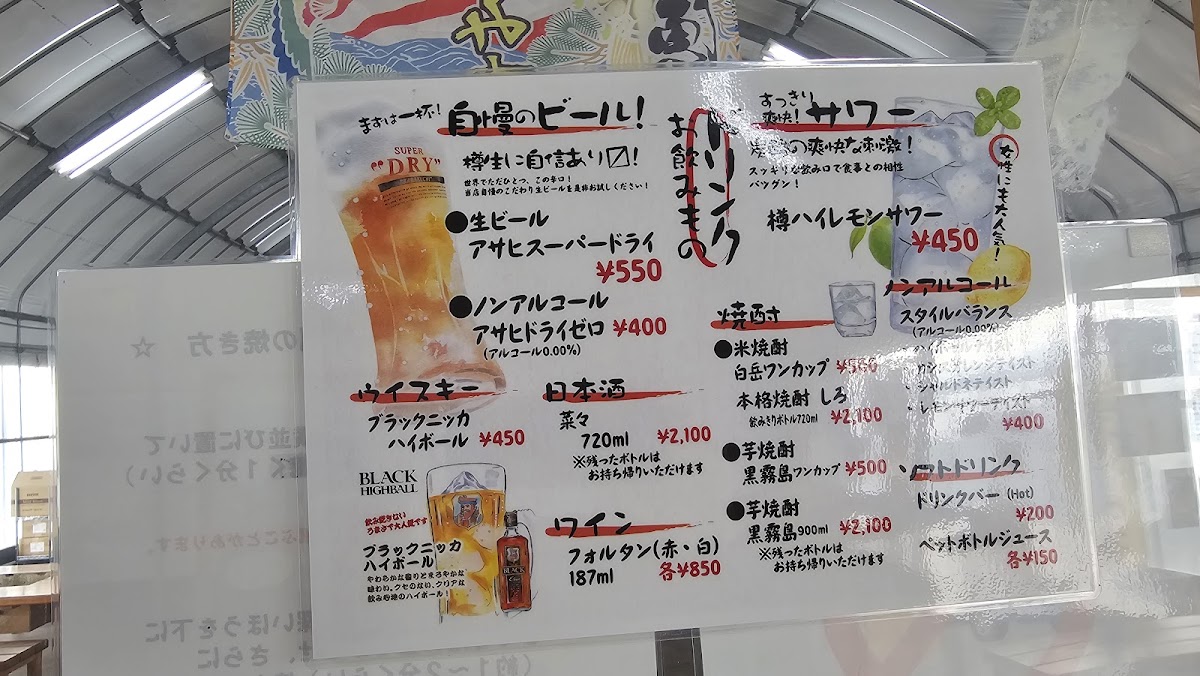 まずは一杯!
自慢のビール!
樽生に自信あり〼!
世界でただひとつ、この辛口!
当店自慢のこだわり生ビールを是非お試しください!
SUPER
"DRY"
●生ビール
アサヒスーパードライ
¥550
●ノンアルコール
アサヒドライゼロ ¥400
(アルコール0.00%)
ウイスキー
ブラックニッカ
ハイボール ¥450
BLACK
HIGHBALL
飲み飽きない
うまさで大人気です
ブラックニッカ
ハイボール
やわらかな香りとまろやかな
味わい。クセのない、クリアな
飲み心地のハイボール!
BLACK
日本酒
菜々
720ml ¥2,100
※残ったボトルは
お持ち帰りいただけます
ワイン
フォルタン(赤・白)
187ml 各¥850
ドリンク
お飲みもの
すっきり
爽快!
サワー
の爽快な刺激!
スッキリな飲み口で食事との相性
バツグン!
女性にも大人気!
樽ハイレモンサワー
¥450
焼酎
●米焼酎
白岳ワンカップ ¥500
本格焼酎 しろ
飲みきりボトル720ml ¥2,100
●芋焼酎
黒霧島ワンカップ ¥500
●芋焼酎
黒霧島900ml ¥2,100
※残ったボトルは
お持ち帰りいただけます
ノンアルコール
スタイルバランス
(アルコール0.00%)
・ハイボールテイスト
・カシスオレンジテイスト
・シャルドネテイスト
・レモンサワーテイスト
¥400
ソフトドリンク
ドリンクバー (Hot)
¥200
ペットボトルジュース
各¥150
の焼き方 ☆
並びに置いて
1分くらい)
ことがあります。
いほうを下に
、さらに
(約1~2分くらい